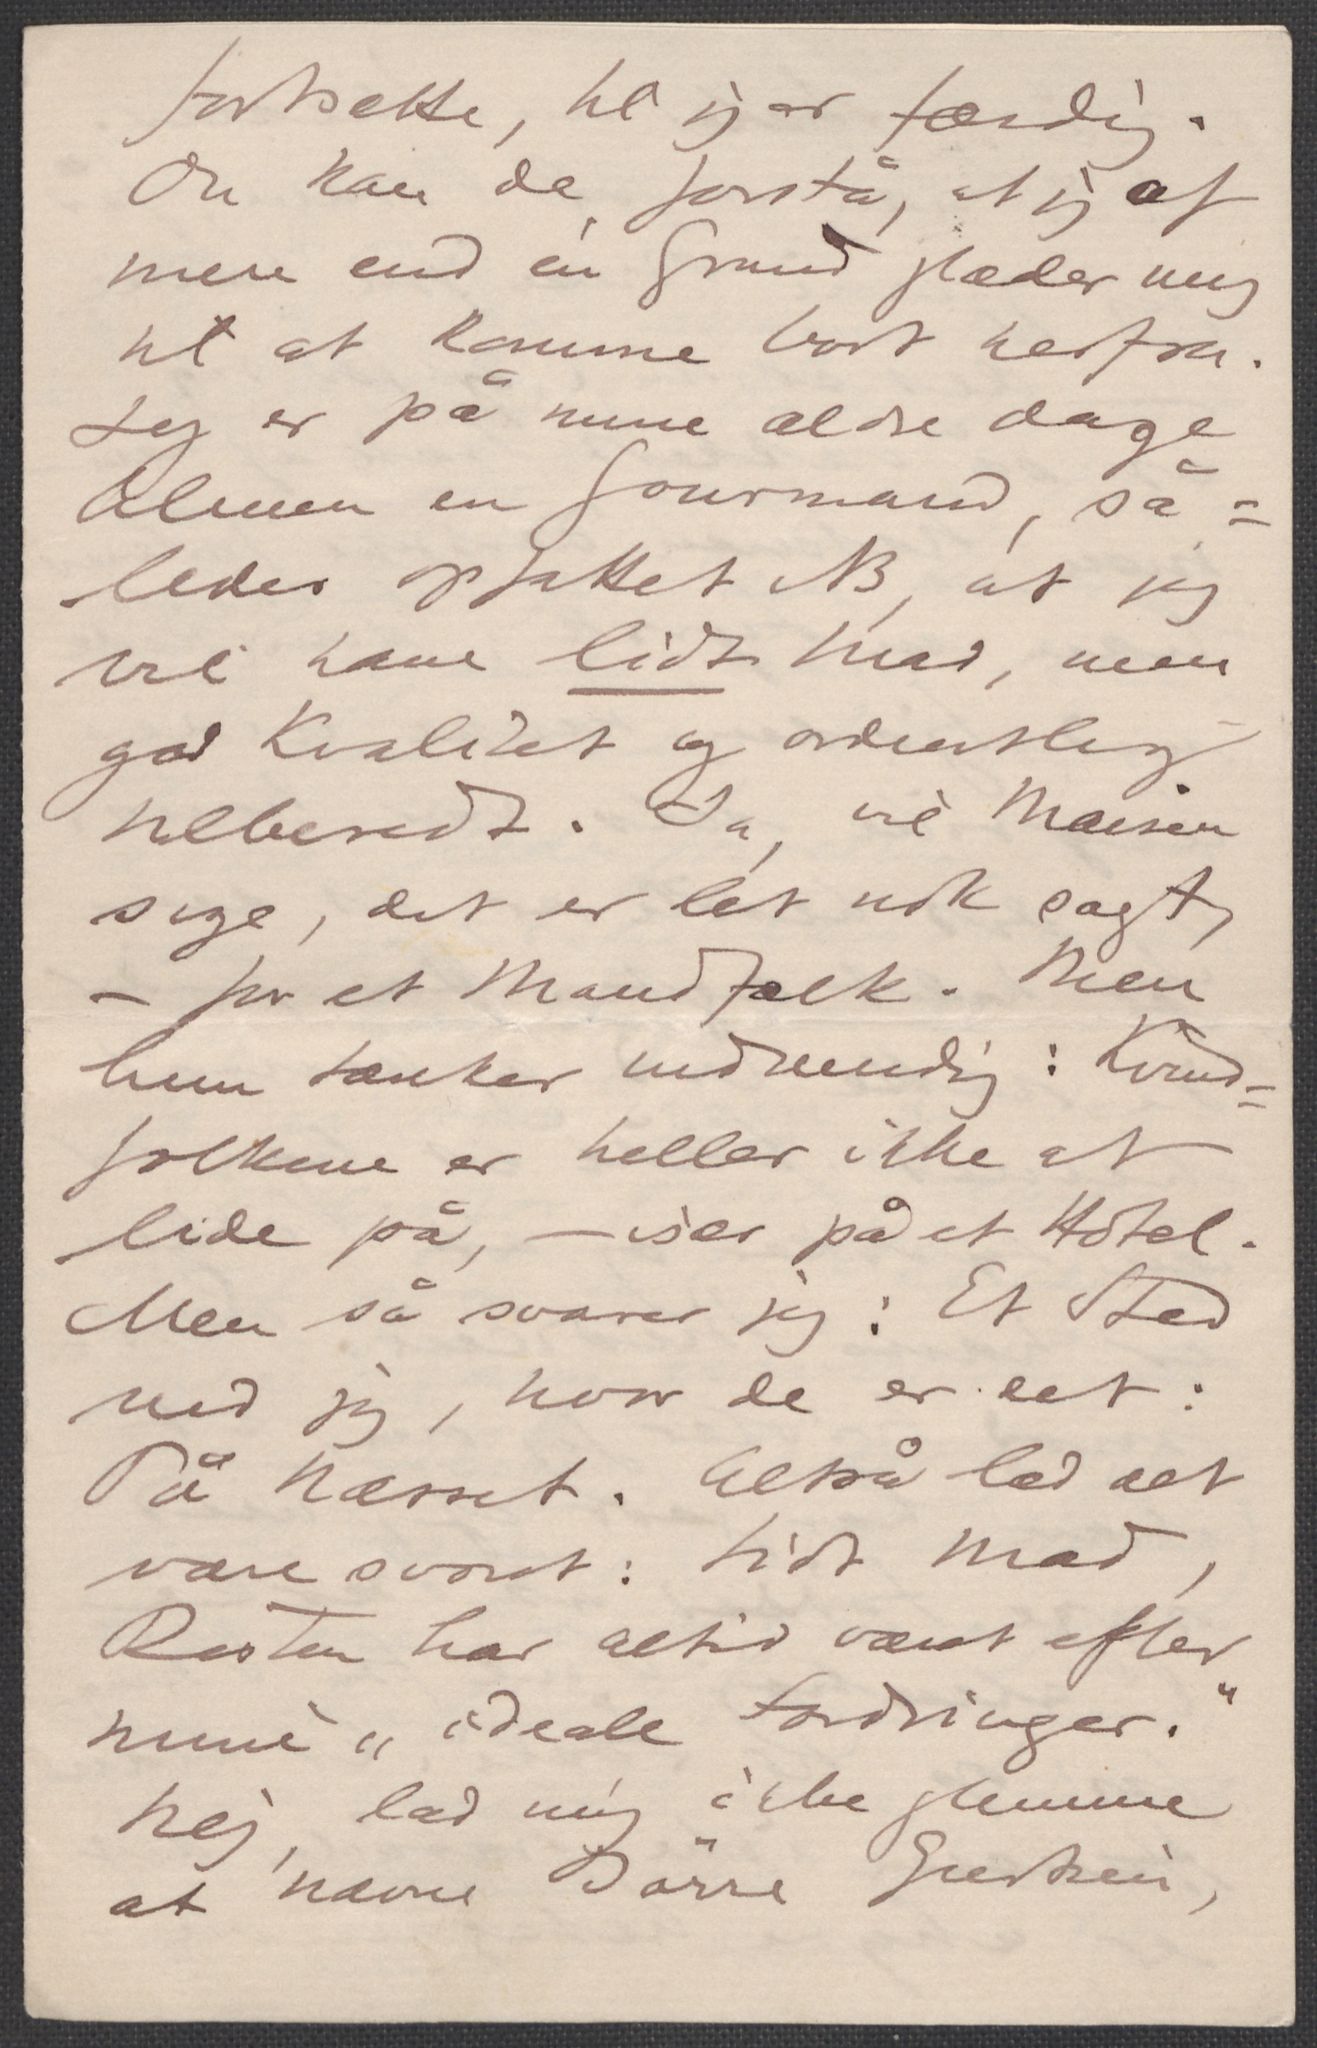 fortsætte, til jeg er færdig.
Du kan da forstå, at jeg af
mere end én Grund glæder mig
til at komme bort herfra.
Jeg er på mine ældre dage
bleven en Gourmand, så=
ledes opfattet NB, at jeg
vil have lidt Mad, men
god Kvalitet og ordentlig
tilberedt. Ja, vil Maisen
sige, det er let nok sagt,
– for et Mandfolk. Men
hun tænker nødvendig: Kvind=
folkene er heller ikke at
lide på, – især på et Hôtel.
Men så svarer jeg: Et Sted
ved jeg, hvor de er det:
På Næsset. Altså lad det
være svoret: Lidt Mad,
Resten har altid været efter
mine „ideale Fordringer."
Nej, lad mig ikke glemme
at nævne Börre Giertsen,